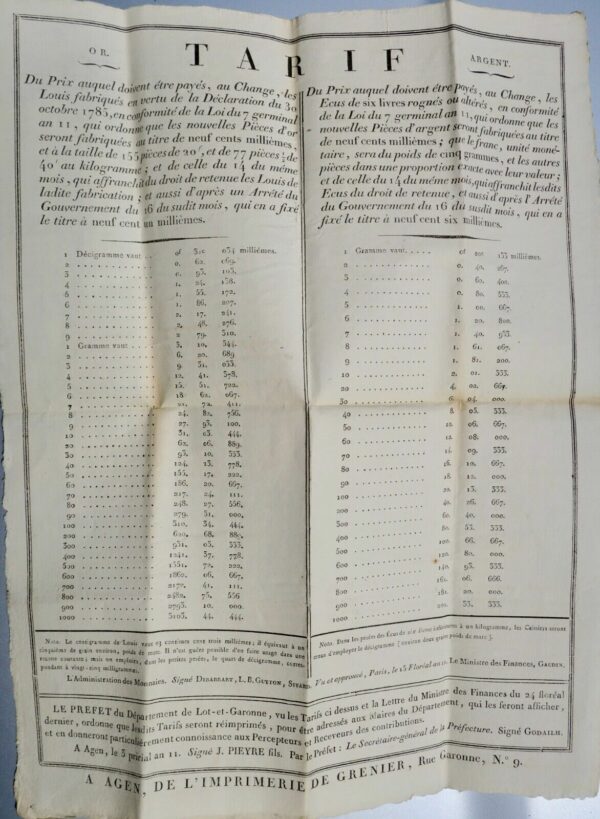 TARIF
OR.
Du Prix auquel doivent être payés, au Change, les
Louis fabriqués en vertu de la Déclaration du 30
octobre 1785, en conformité de la Loi du 7 germinal
an 11, qui ordonne que les nouvelles Pièces d'or
seront fabriquées au titre de neuf cents millièmes,
et à la taille de 155 pièces de 20f, et de 77 pièces ½ de
40f au kilogramme; et de celle du 14 du même
mois, qui affranchit du droit de retenue les Louis de
ladite fabrication; et aussi d'après un Arrêté du
Gouvernement du 16 du susdit mois, qui en a fixé
le titre à neuf cent un millièmes.
1 Décigramme vaut... 0f 31c 034 millièmes.
2 0. 62. 069.
3 0. 93. 103.
4 1. 24. 138.
5 1. 55. 172.
6 1. 86. 207.
7 2. 17. 241.
8 2. 48. 276.
9 2 79. 310.
1 Gramme vaut 3. 10. 344.
2 6. 20. 689
3 9. 31. 033.
4 12. 41. 378.
5 15. 51. 722.
6 18. 62. 067.
7 21. 72. 411.
8 24. 82. 756.
9 27. 93. 100.
10 31. 03. 444.
20 62. 06. 889.
30 93. 10. 333.
40 124. 13. 778.
50 155. 17. 222.
60 186. 20. 667.
70 217. 24. 111.
80 248. 27. 556.
90 279. 31. 000.
100 310. 34. 444.
200 620. 68. 889.
300 931. 03. 333.
400 1241. 37. 778.
500 1551. 72. 222.
600 1862. 06. 667.
700 2172. 41. 111.
800 2482. 75. 556
900 2793. 10. 000.
1000 3103. 44. 444.
NOTA. Le centigramme de Louis vaut 03 centimes cent trois millièmes; il équivaut à un
cinquième de grain environ, poids de marc. Il n'est guère possible d'en faire usage dans une
mais on emploîra, dans les petites pesées, le quart de décigramme, correspondant
à vingt-cinq milligrammes.
L'Administration des Monnaies. Signé DIBARRART, L. B. GUYTON,
ARGENT.
Du Prix auquel doivent être payés, au Change, les
Ecus de six livres rognés ou altérés, en conformité
de la Loi du 7 germinal an 11, qui ordonne que les
nouvelles Pièces d'argent seront fabriquées au titre
de neuf cents millièmes; que le franc, unité monétaire,
sera du poids de cinq grammes, et les autres
pièces dans une proportion exacte avec leur valeur;
et de celle du 14 du même mois, qui affranchit lesdits
Ecus du droit de retenue, et aussi d'après l'Arrêté
du Gouvernement du 16 du susdit mois, qui en a
fixé le titre à neuf cent six millièmes.
1 Gramme vaut 0f 20c 133 millièmes.
2 0. 40. 267.
3 0. 60. 400.
4 0. 80. 533.
5 1. 00. 667.
6 1. 20. 800.
7 1. 40. 933.
8 1. 61. 067.
9 1. 81. 200.
10 2. 01. 333.
20 4. 02. 667.
30 6. 04. 000.
40 8. 05. 333.
50 10. 06. 667.
60 12. 08. 000.
70 14. 09. 333.
80 16. 10. 667.
90 18. 12. 000.
100 20. 13. 333.
200 40. 26. 667.
300 60. 40. 000.
400 80. 53. 333.
500 100. 66. 667.
600 120. 80. 000.
700 140. 93. 333.
800 161. 06. 666.
900 181. 20. 000.
1000 201. 33. 333.
NOTA. Dans les pesées des Écus de six livres inférieures à un kilogramme, les Caissiers seront
tenus d'employer le décigramme (environ deux grains poids de marc).
Vu et approuvé, Paris, le 15 Floréal an 11. Le Ministre des Finances, GAUDIN.
LE PREFET du Département de Lot-et-Garonne, vu les Tarifs ci dessus et la Lettre du Ministre des Finances du 24 floréal
dernier, ordonne que lesdits Tarifs seront réimprimés, pour être adressés aux Maires du Département, qui les feront afficher,
et en donneront particulièrement connoissance aux Percepteurs et Receveurs des contributions.
A Agen, le 3 prairial an 11. Signé J. PIEYRE fils. Par le Préfet: Le Secrétaire-général de la Préfecture. Signé GODAILH.
A AGEN, DE L'IMPRIMERIE DE GRENIER, Rue Garonne, N.° 9.